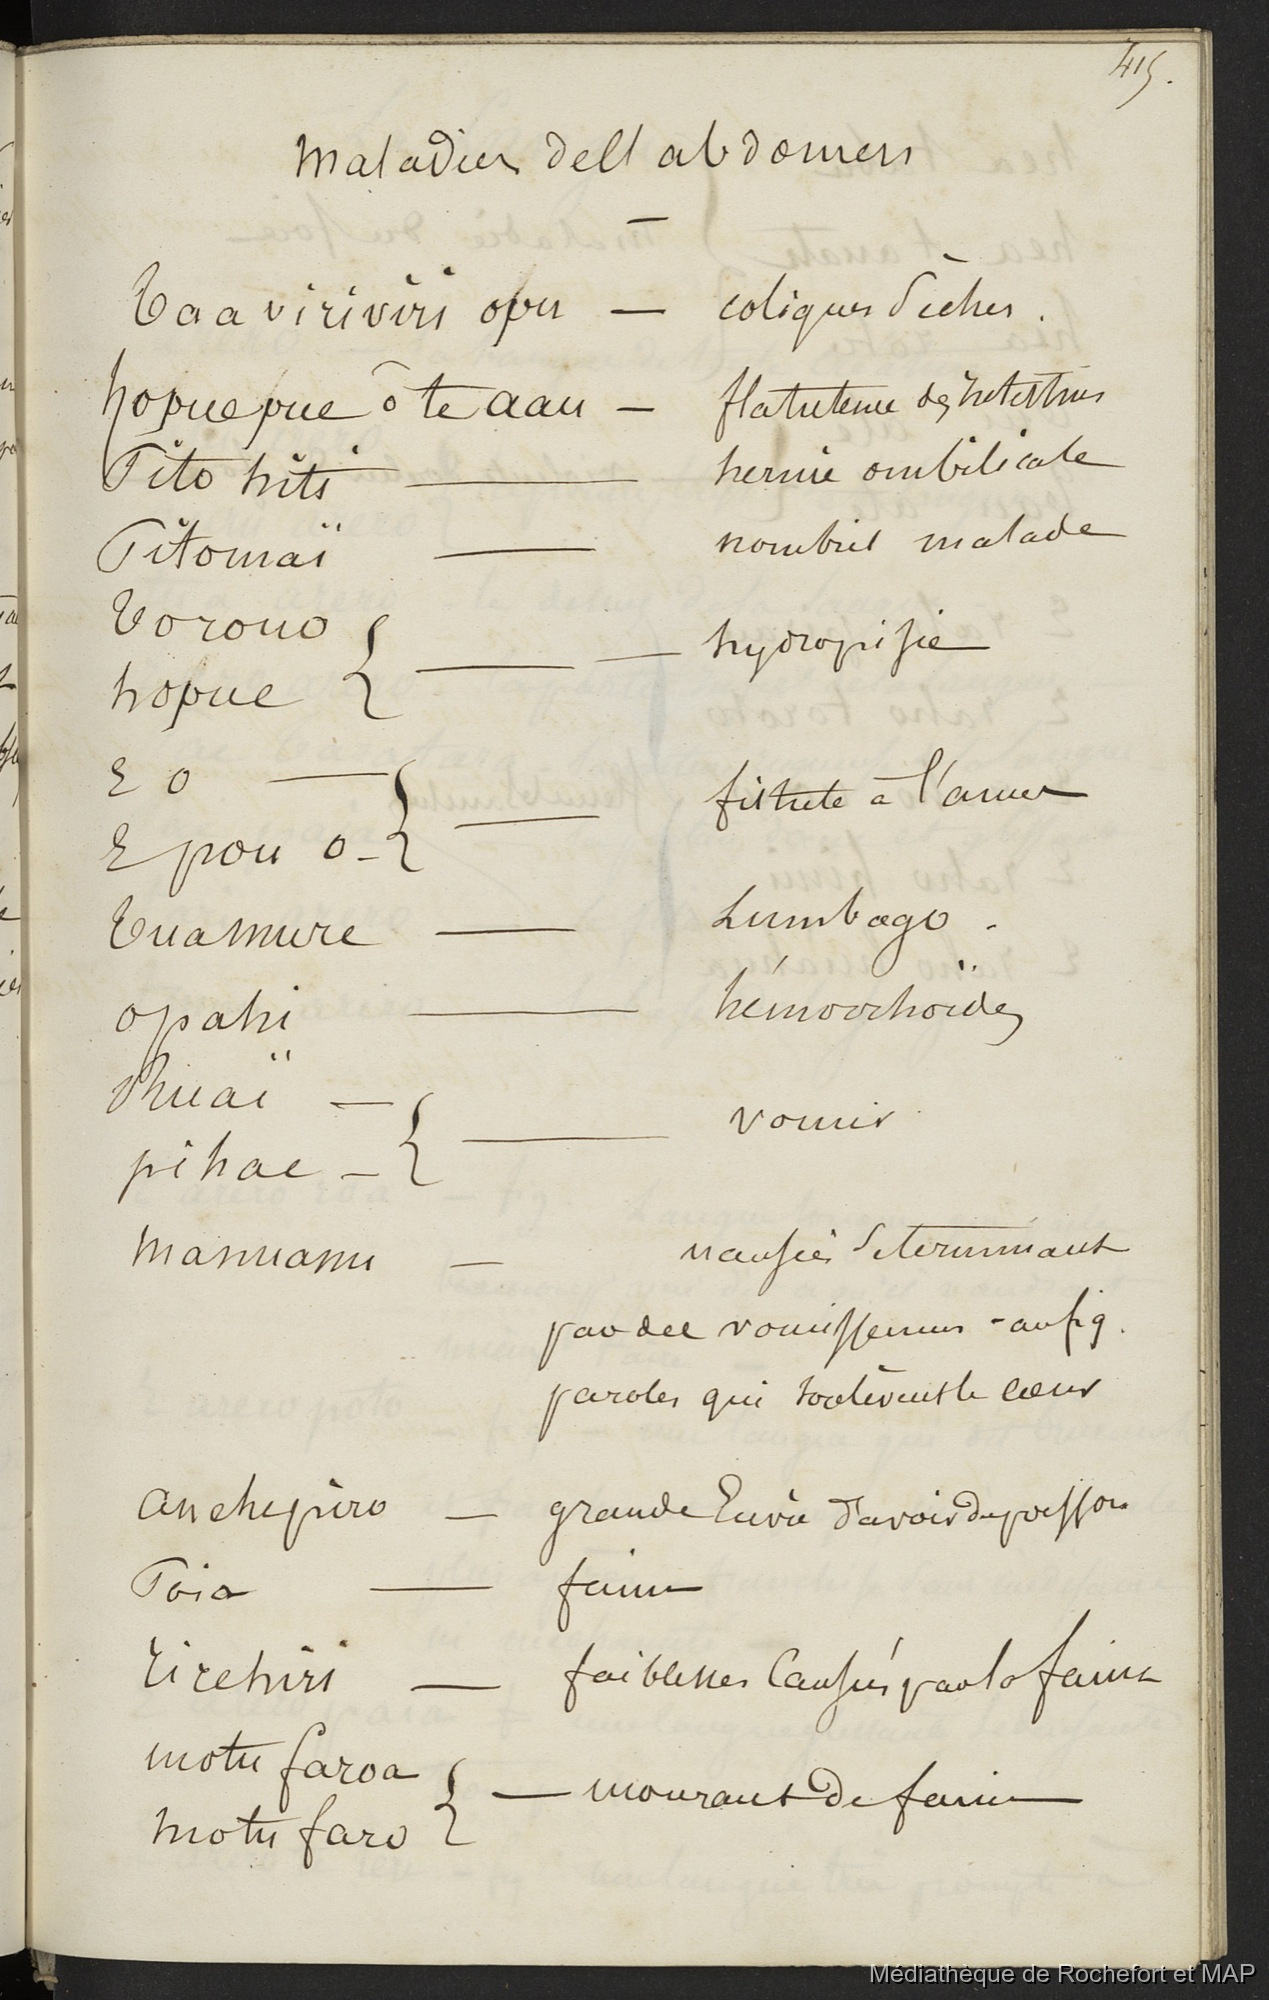 415.
Maladies de l'abdomen
Taaviriviri opu — coliques sèches.
hopuepue ô te aau — flatulence des intestins
Tito hiti — hernie ombilicale
Titomaï — nombril malade
Torouo
hopue } — hydropisie
E o —
E pou o - } — fistule à l'anus
Tuamure — Lumbago.
opahi — hémorrhoïdes
Ruaï —
pihae — } — vomir
Manuanu — nausées déterminant
par des vomissemens - au fig.
paroles qui soulèvent le cœur
Anehepiro — grande Envie d'avoir du poisson
Poia — faim
Tirehiri — faiblesses Causées par la faim
motu faroa
motu faro } — mourant De faim
Médiathèque de Rochefort et MAP